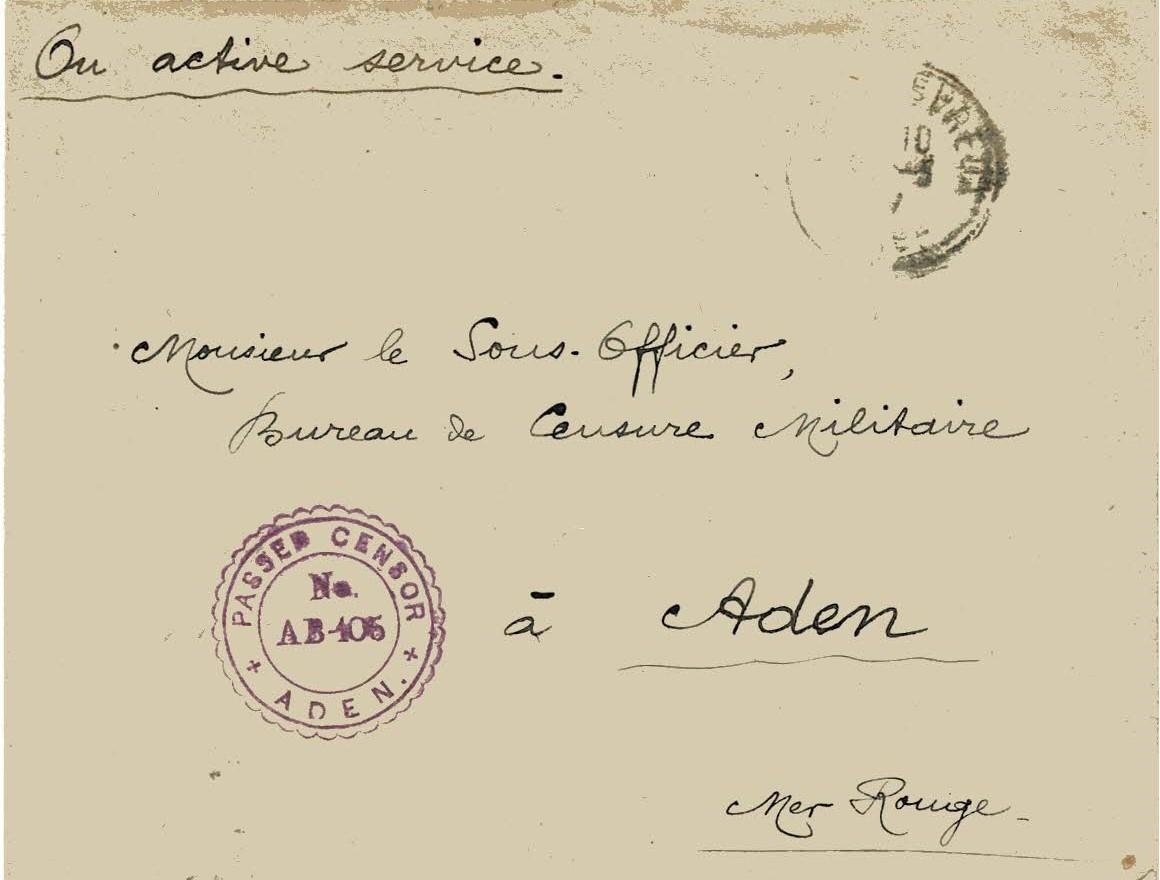 On active service.
Monsieur le Sous-Officier,
Bureau de Censure Militaire
PASSED CENSOR
No.
AB-105
ADEN.
à Aden
Mer Rouge